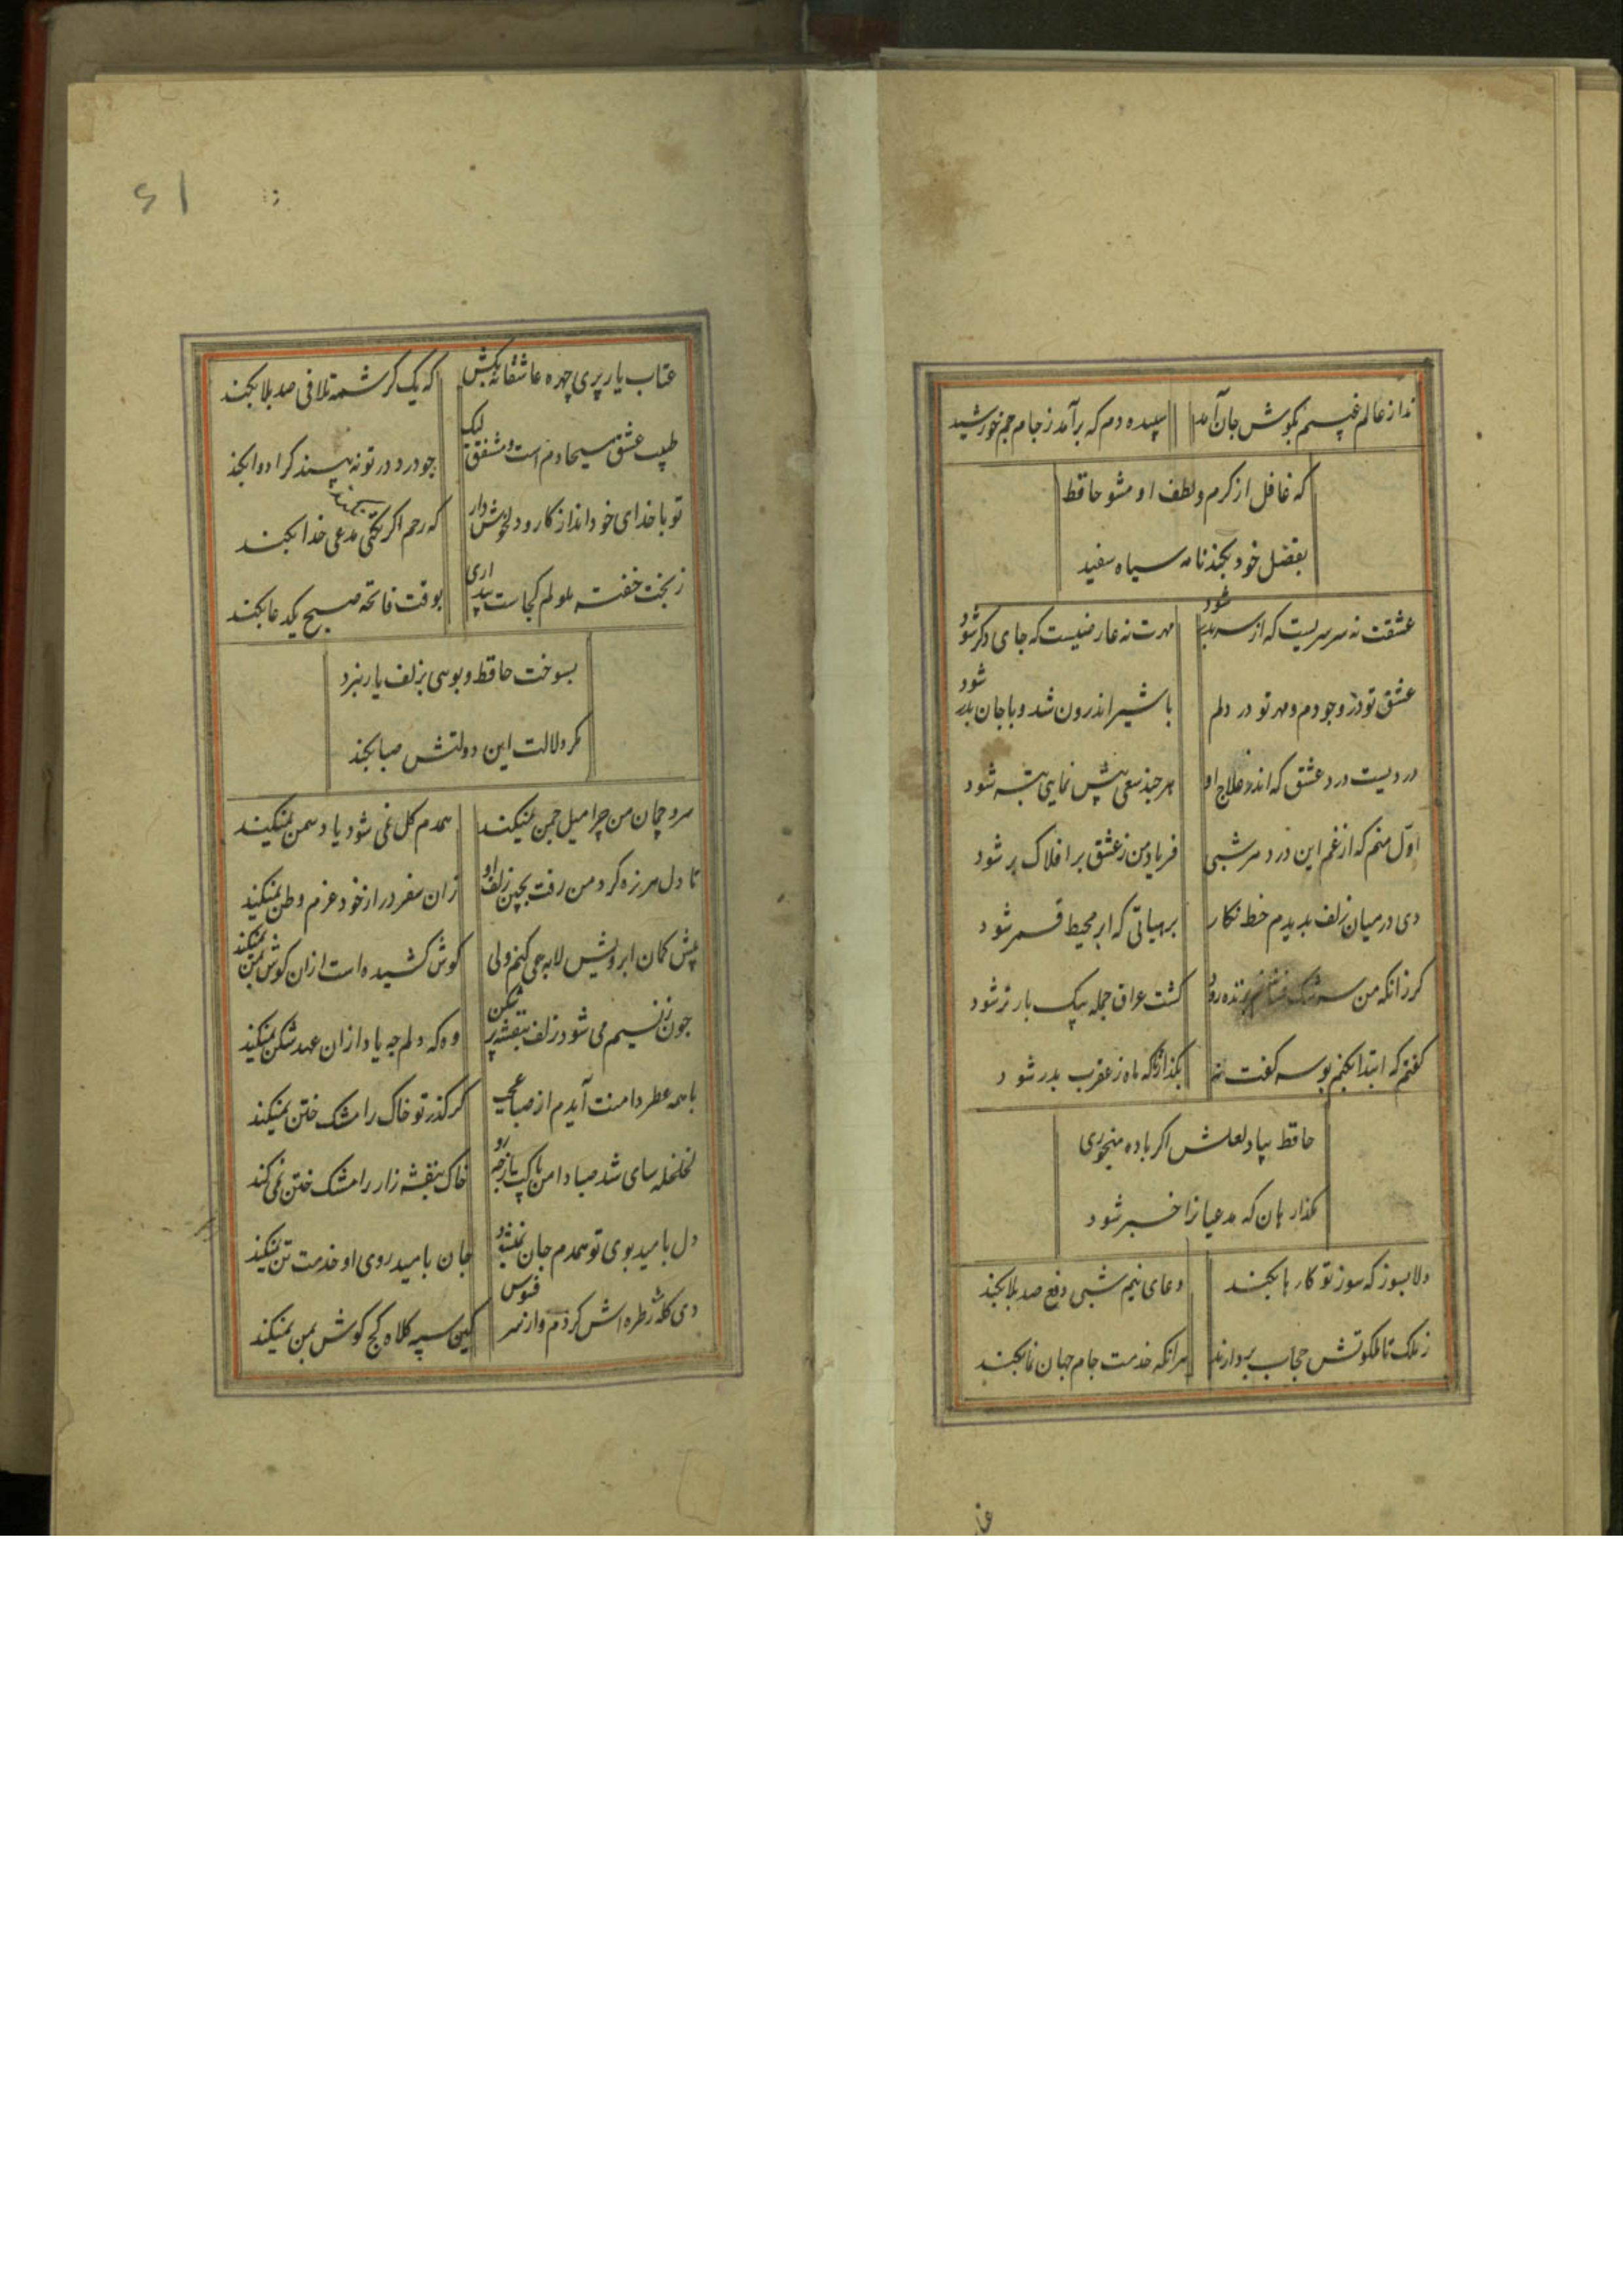 ندا ز عالم غیبم بکوش جان آمد سپیده دم که برآمد ز جام جم خورشید
که غافل از کرم و لطف او مشو حافظ
بفضل خود بکند نامه سیاه سفید
عشقت نه سرسریست که از سر بدر شود مهرت نه عارضیست که جای دکر شود
عشق تو در وجودم و مهر تو در دلم با شیر اندرون شد و با جان بدر شود
دردیست درد عشق که اندر علاج او هر چند سعی پیش نمایی بتر شود
اول منم که از غم این درد هر شبی فریاد من ز عشق بر افلاک بر شود
دی در میان زلف بدیدم خط نکار بر هیاتی که ابر محیط قمر شود
کر زانکه من سرشک فشانم بزنده رود کشت عراق جمله بیک بار تر شود
کفتم که ابتدا بکنم بوسه کفت نه بکذار تاکه ماه ز عقرب بدر شود
حافظ بیاد لعلش اکر باده میخوری
مکذار هان که مدعیانرا خبر شود
دلا بسوز که سوز تو کارها بکند دعای نیم شبی دفع صد بلا بکند
ز ملک تا ملکوتش حجاب بردارند هر انکه خدمت جام جهان نما بکند
۶۱
عتاب یار پری چهره عاشقانه بکش که یک کرشمه تلافی صد بلا بکند
طبیب عشق مسیحا دم است و مشفق لیک چو درد در تو نه بیند کرا دوا بکند
تو با خدای خود انداز کار و دل خوش دار که رحم اکر نکند مدعی خدا بکند
ز بخت خفته ملولم کجاست بیداری بوقت فاتحه صبح یک دعا بکند
بسوخت حافظ و بوی بزلف یار نبرد
مکر دلالت این دولتش صبا بکند
سرو چمان من چرا میل چمن نمیکند همدم کل نمی شود یاد سمن نمیکند
تا دل هرزه کرد من رفت بچین زلف او زان سفر دراز خود عزم وطن نمیکند
پیش کمان ابرویش لابه همی کنم ولی کوش کشیده است ازان کوش بمن نمیکند
چون ز نسیم می شود زلف بنفشه پر شکن وه که دلم چه یاد ازان عهد شکن نمیکند
با همه عطر دامنت آیدم از صبا عجب کز کذر تو خاک را مشک ختن نمیکند
لخلخه سای شد صبا دامن پاک از چه رو خاک بنفشه زار را مشک ختن نمی کند
دل بامید بوی تو همدم جان نمیشود جان بامید روی او خدمت تن نمیکند
دی کله ز طره اش کردم و از سر فسوس کین سیه کلاه کج کوش بمن نمیکند